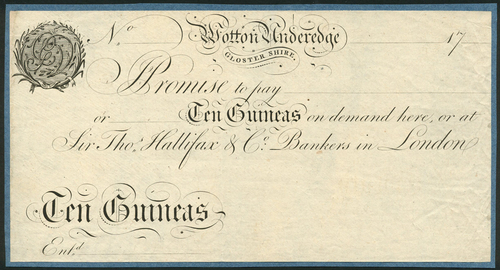 No Wotton Underedge 17
GLOSTER SHIRE.
I Promise to pay
or Ten Guineas on demand here, or at
Sir Thos. Hallifax & Co. Bankers in London
Ten Guineas
Entd.